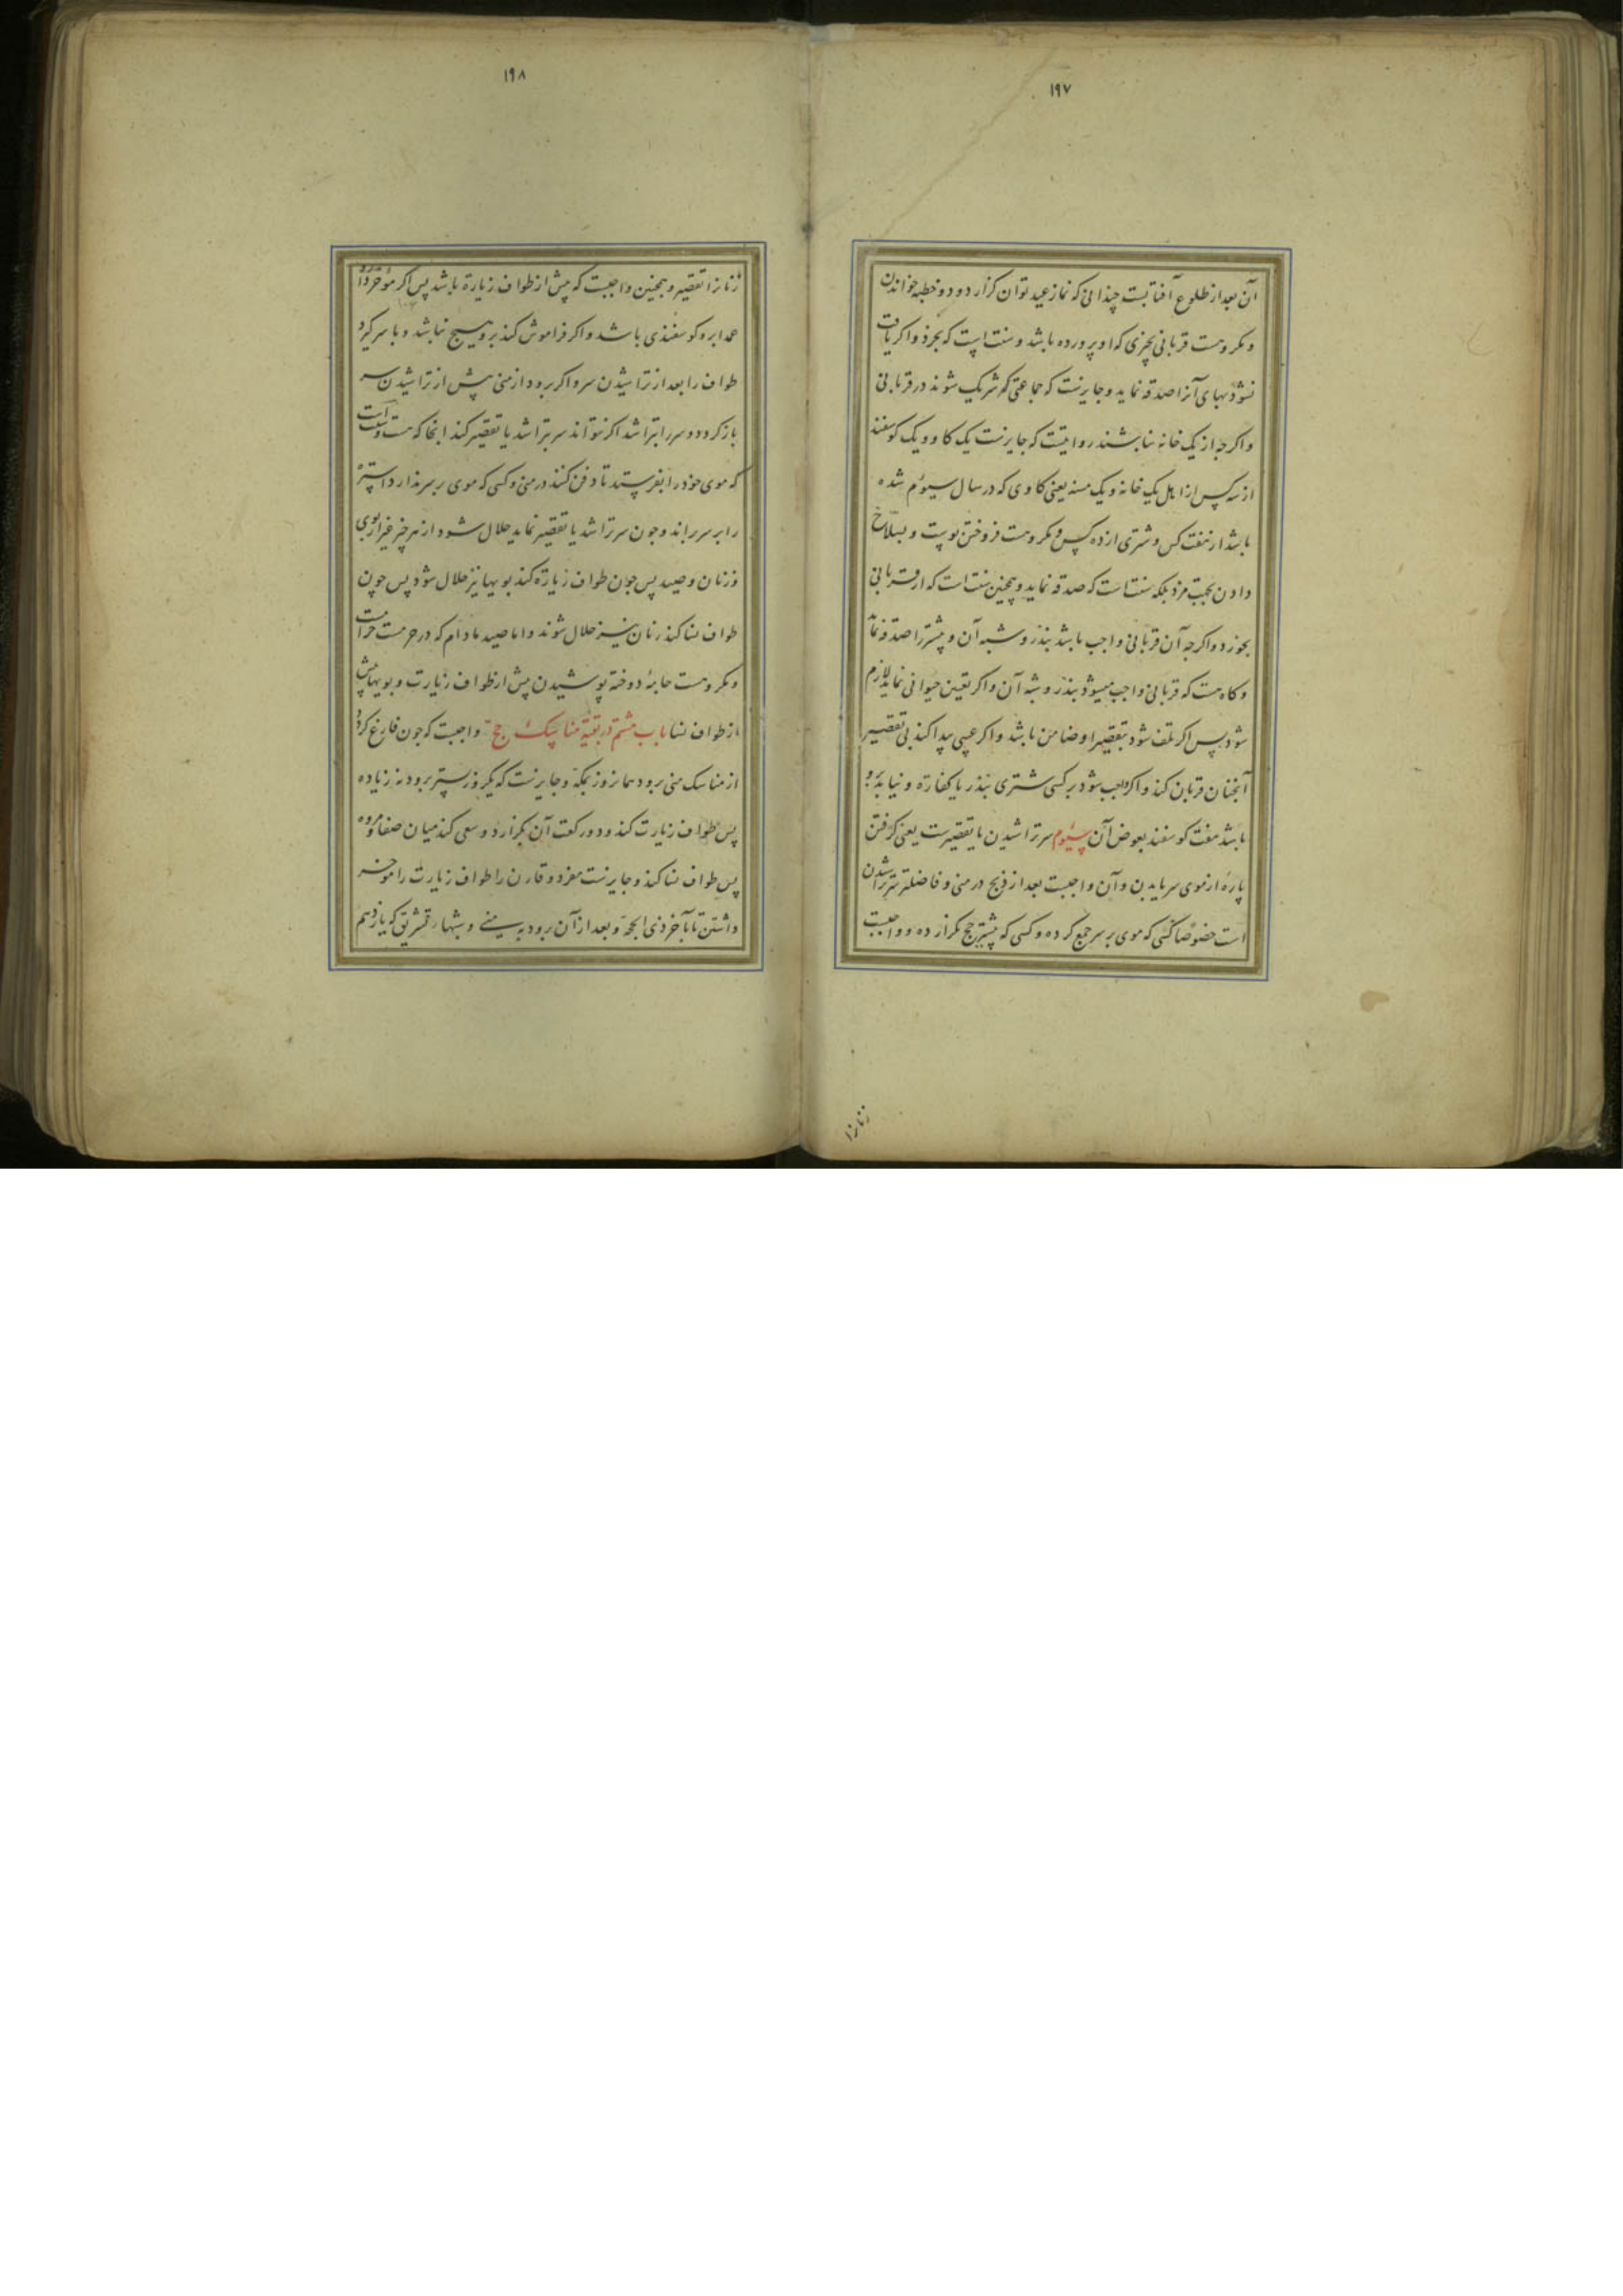 ۱۹۷
آن بعد از طلوع آفتابست چندانی که نماز عید توان کزارد و دو خطبه خواندن
و مکروهست قربانی بچیزی که او پرورده باشد و سنت است که بخرد و اکر یافت
نشود بهای آنرا صدقه نماید و جایزست که جماعتی که شریک شوند در قربانی
و اکرچه از یک خانه نباشند روایتست که جایزست یک کاو و یک کوسفند
از سه کس از اهل یک خانه و یک مسنه یعنی کاوی که در سال سیوم شده
باشد از هفت کس و شتری از ده کس و مکروهست فروختن پوست و بسلاخ
دادن بجهت مزد بلکه سنت است که صدقه نماید و همچنین سنت است که از قربانی
بخورد و اکرچه آن قربانی واجب باشد بنذر و شبه آن و بیشتر را صدقه نماید
و کاه هست که قربانی واجب میشود بنذر و شبه آن و اکر تعین حیوانی نماید لازم
شود پس اکر تلف شود بتقصیر او ضامن باشد و اکر عیبی پیدا کند بی تقصیر
آنچنان قربان کند و اکر واجب شود بر کسی شتری بنذر یا کفارة و نیابد برو
باشد هفت کوسفند بعوض آن سیوم سر تراشیدن یا تقصیرست یعنی کرفتن
پارۀ از موی سر یا بدن و آن واجبست بعد از ذبح در منی و فاضلتر سر تراشیدن
است خصوصا کسی که موی بر سر جمع کرده و کسی که پیشتر حج نکزارده و واجبست
زنانرا
۱۹۸
زنانرا تقصیر و همچنین واجبست که پیش از طواف زیارة باشد پس اکر مؤخر دارد
عمدا برو کوسفندی باشد و اکر فراموش کند برو هیچ نباشد و با سر کیرد
طواف را بعد از تراشیدن سر و اکر برود از منی پیش از تراشیدن سر
باز کردد و سر را بتراشد اکر نتواند سر بتراشد یا تقصیر کند آنجا که هست و سنت است
که موی خود را بفرستد تا دفن کنند در منی و کسی که موی بر سر ندارد استره
را بر سر براند و چون سر تراشد یا تقصیر نماید حلال شود از هر چیز غیر از بوی
و زنان و صید پس چون طواف زیارة کند بویها نیز حلال شود پس چون
طواف نسا کند زنان نیز حلال شوند و اما صید مادام که در حرمست حرامست
و مکروهست جامۀ دوخته پوشیدن پیش از طواف زیارت و بویها پیش
از طواف نسا باب هشتم در بقیۀ مناسک حج واجبست که چون فارغ کردد
از مناسک منی برود همانروز بمکه و جایزست که یکروز پستر برود نه زیاده
پس طواف زیارت کند و دو رکعت آن بکزارد و سعی کند میان صفا و مروه
پس طواف نسا کند و جایزست مفرد و قارن را طواف زیارت را موخر
داشتن تا بآخر ذی الحجه و بعد از آن برود به منی و شبهاء تشریق که یازدهم